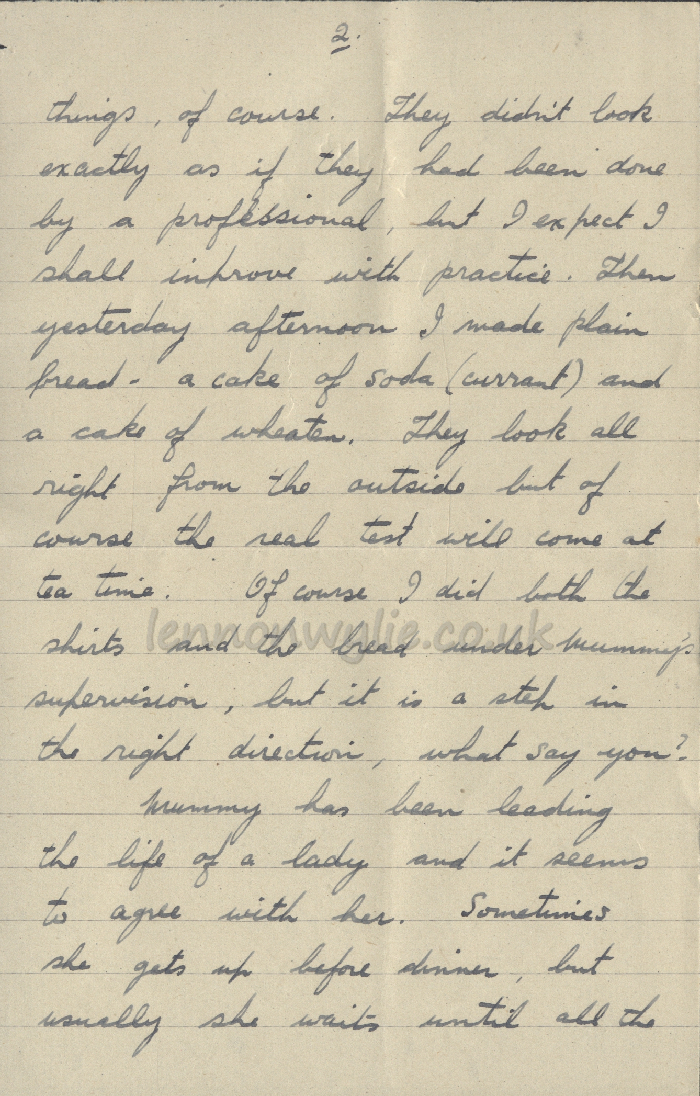 2.
things, of course. They didn't look
exactly as if they had been done
by a professional, but I expect I
shall improve with practice. Then
yesterday afternoon I made plain
bread - a cake of soda (currant) and
a cake of wheaten. They look all
right from the outside but of
course the real test will come at
tea time. Of course I did both the
lennonwylie.co.uk
shirts and the bread under Mummy's
supervision, but it is a step in
the right direction, what say you?
Mummy has been leading
the life of a lady and it seems
to agree with her. Sometimes
she gets up before dinner, but
usually she waits until all the